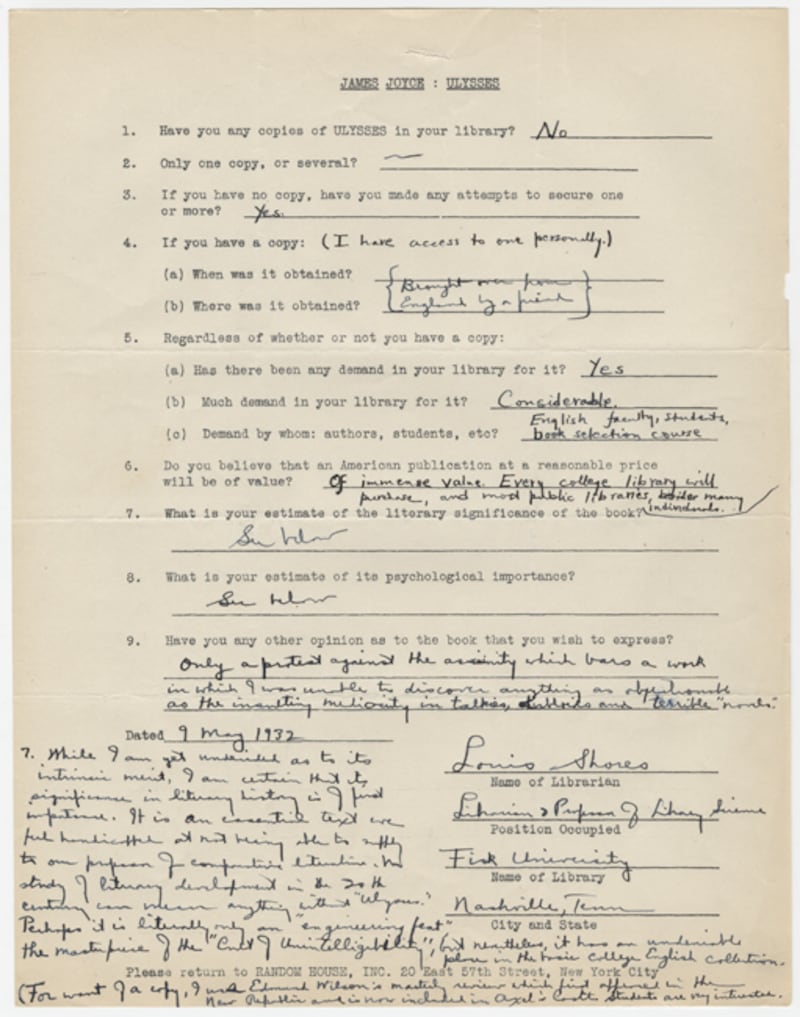 JAMES JOYCE : ULYSSES
1. Have you any copies of ULYSSES in your library? No
2. Only one copy, or several? —
3. If you have no copy, have you made any attempts to secure one
or more? Yes.
4. If you have a copy: (I have access to one personally.)
(a) When was it obtained? { Brought over from }
(b) Where was it obtained? { England by a friend }
5. Regardless of whether or not you have a copy:
(a) Has there been any demand in your library for it? Yes
(b) Much demand in your library for it? Considerable.
English faculty, students,
(c) Demand by whom: authors, students, etc? book selection course
6. Do you believe that an American publication at a reasonable price
will be of value? Of immense value. Every college library will
purchase, and most public libraries, besides many
individuals.
7. What is your estimate of the literary significance of the book?
See below
8. What is your estimate of its psychological importance?
See below
9. Have you any other opinion as to the book that you wish to express?
Only a protest against the asininity which bars a work
in which I was unable to discover anything as objectionable
as the insulting mediocrity in talkies, and terrible "novels".
Dated 9 May 1932
Louis Shores
Name of Librarian
Librarian & Professor of Library Science
Position Occupied
Fisk University
Name of Library
Nashville, Tenn
City and State
7. While I am yet undecided as to its
intrinsic merit, I am certain that its
significance in literary history is of first
importance. It is an essential text we
feel handicapped at not being able to supply
to our professor of comparative literature. No
study of literary development in the 20th
century can mean anything without "Ulysses."
Perhaps it is literally only an "engineering feat"
the masterpiece of the "Cult of Unintelligibility", but nevertheless, it has an undeniable
place in the basic college English collection.
Please return to RANDOM HOUSE, INC. 20 East 57th Street, New York City
(For want of a copy, I use Edmund Wilson's masterly review which first appeared in the
New Republic and is now included in Axel's Castle. Students are very interested.